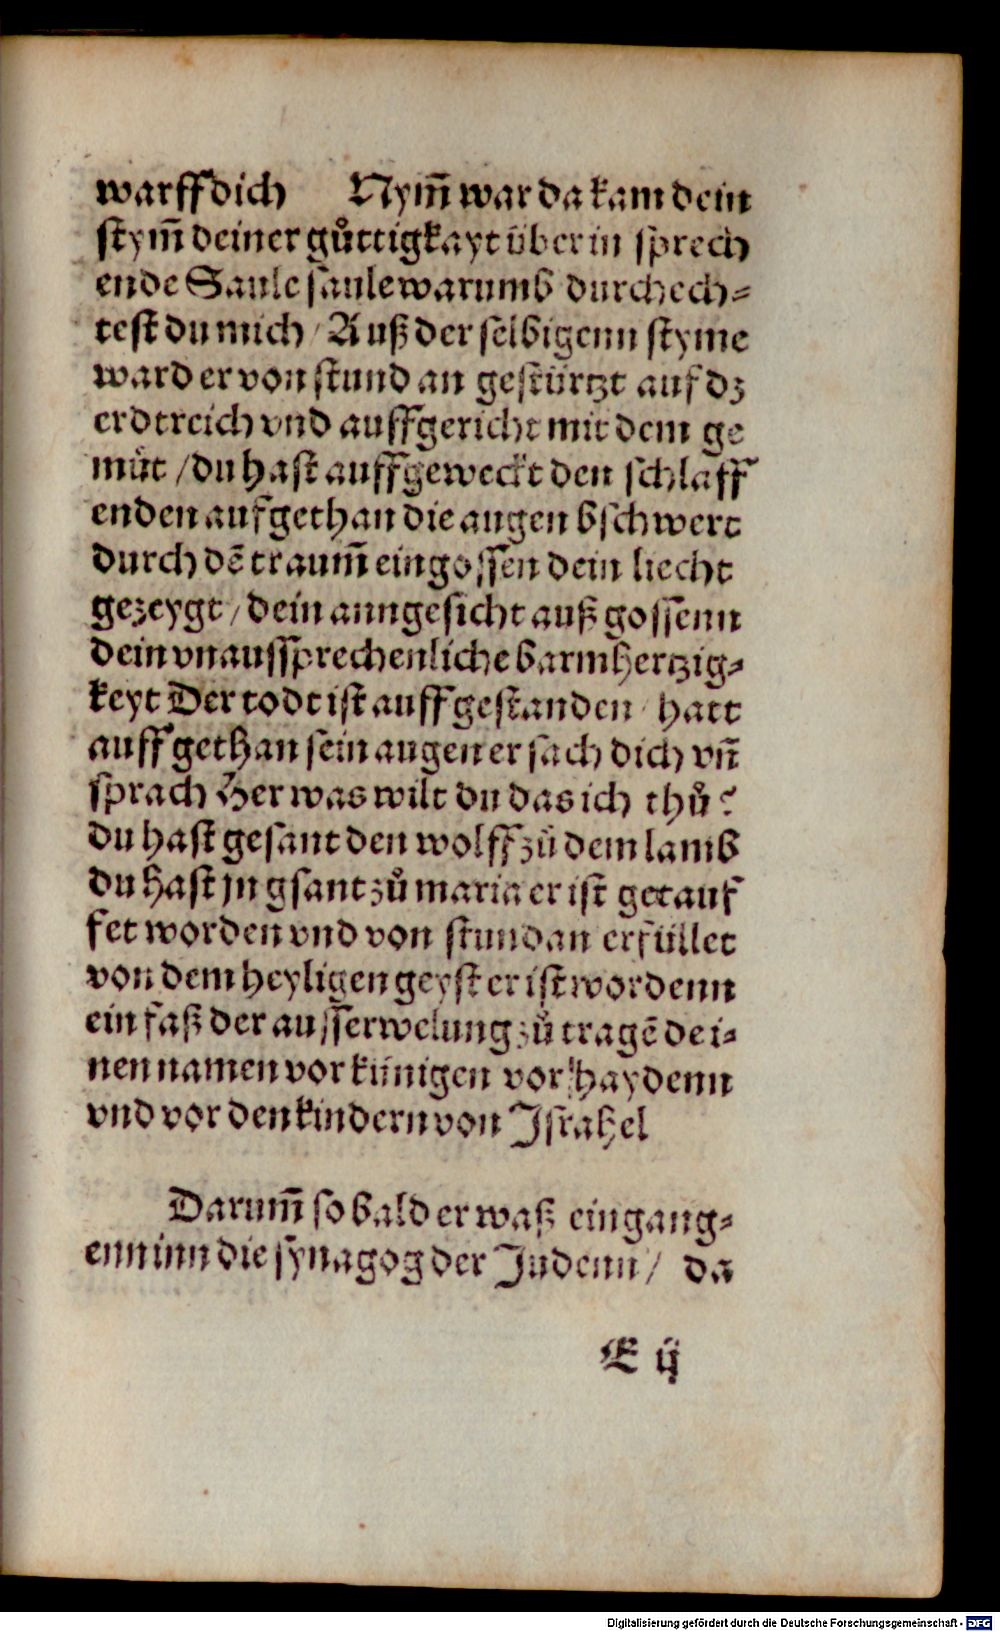 warff dich Nym̃ war da kam dein
stym̃ deiner gůttigkayt über in sprech
ende Saule saule warumb durchech⸗
test du mich / Auß der selbigenn styme
ward er von stund an gestürtzt auf dz
erdtreich vnd auffgericht mit dem ge
můt / du hast auffgeweckt den schlaff
enden aufgethan die augen bschwert
durch dē traum̃ eingossen dein liecht
gezeygt / dein anngesicht auß gossenn
dein vnaussprechenliche barmhertzig⸗
keyt Der todt ist auff gestanden / hatt
auff gethan sein augen er sach dich vñ
sprach Her was wilt du das ich thů?
du hast gesant den wolff zů dem lamb
du hast jn gsant zů maria er ist getauf
fet worden vnd von stund an erfüllet
von dem heyligen geyst er ist wordenn
ein faß der ausserwelung zů tragē dei⸗
nen namen vor künigen vor haydenn
vnd vor den kindern von Israhel
Darum̃ so bald er waß eingang⸗
enn inn die synagog der Judenn / da
E ij
Digitalisierung gefördert durch die Deutsche Forschungsgemeinschaft - DFG